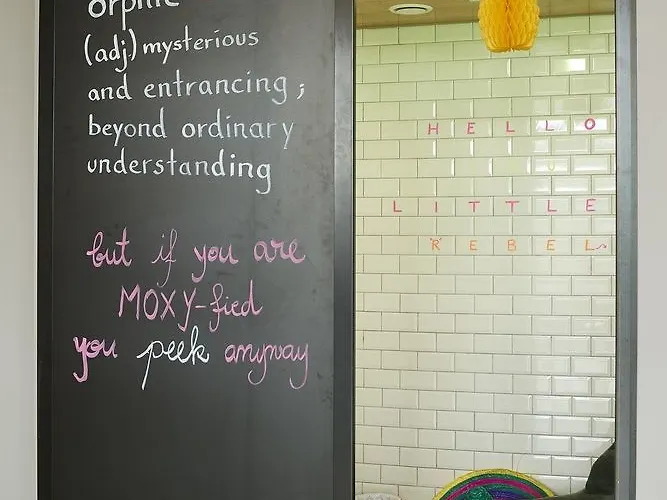 orphic
(adj) mysterious
and entrancing ;
beyond ordinary
understanding
but if you are
MOXY-fied
you peek anyway
HELLO
LITTLE
REBEL